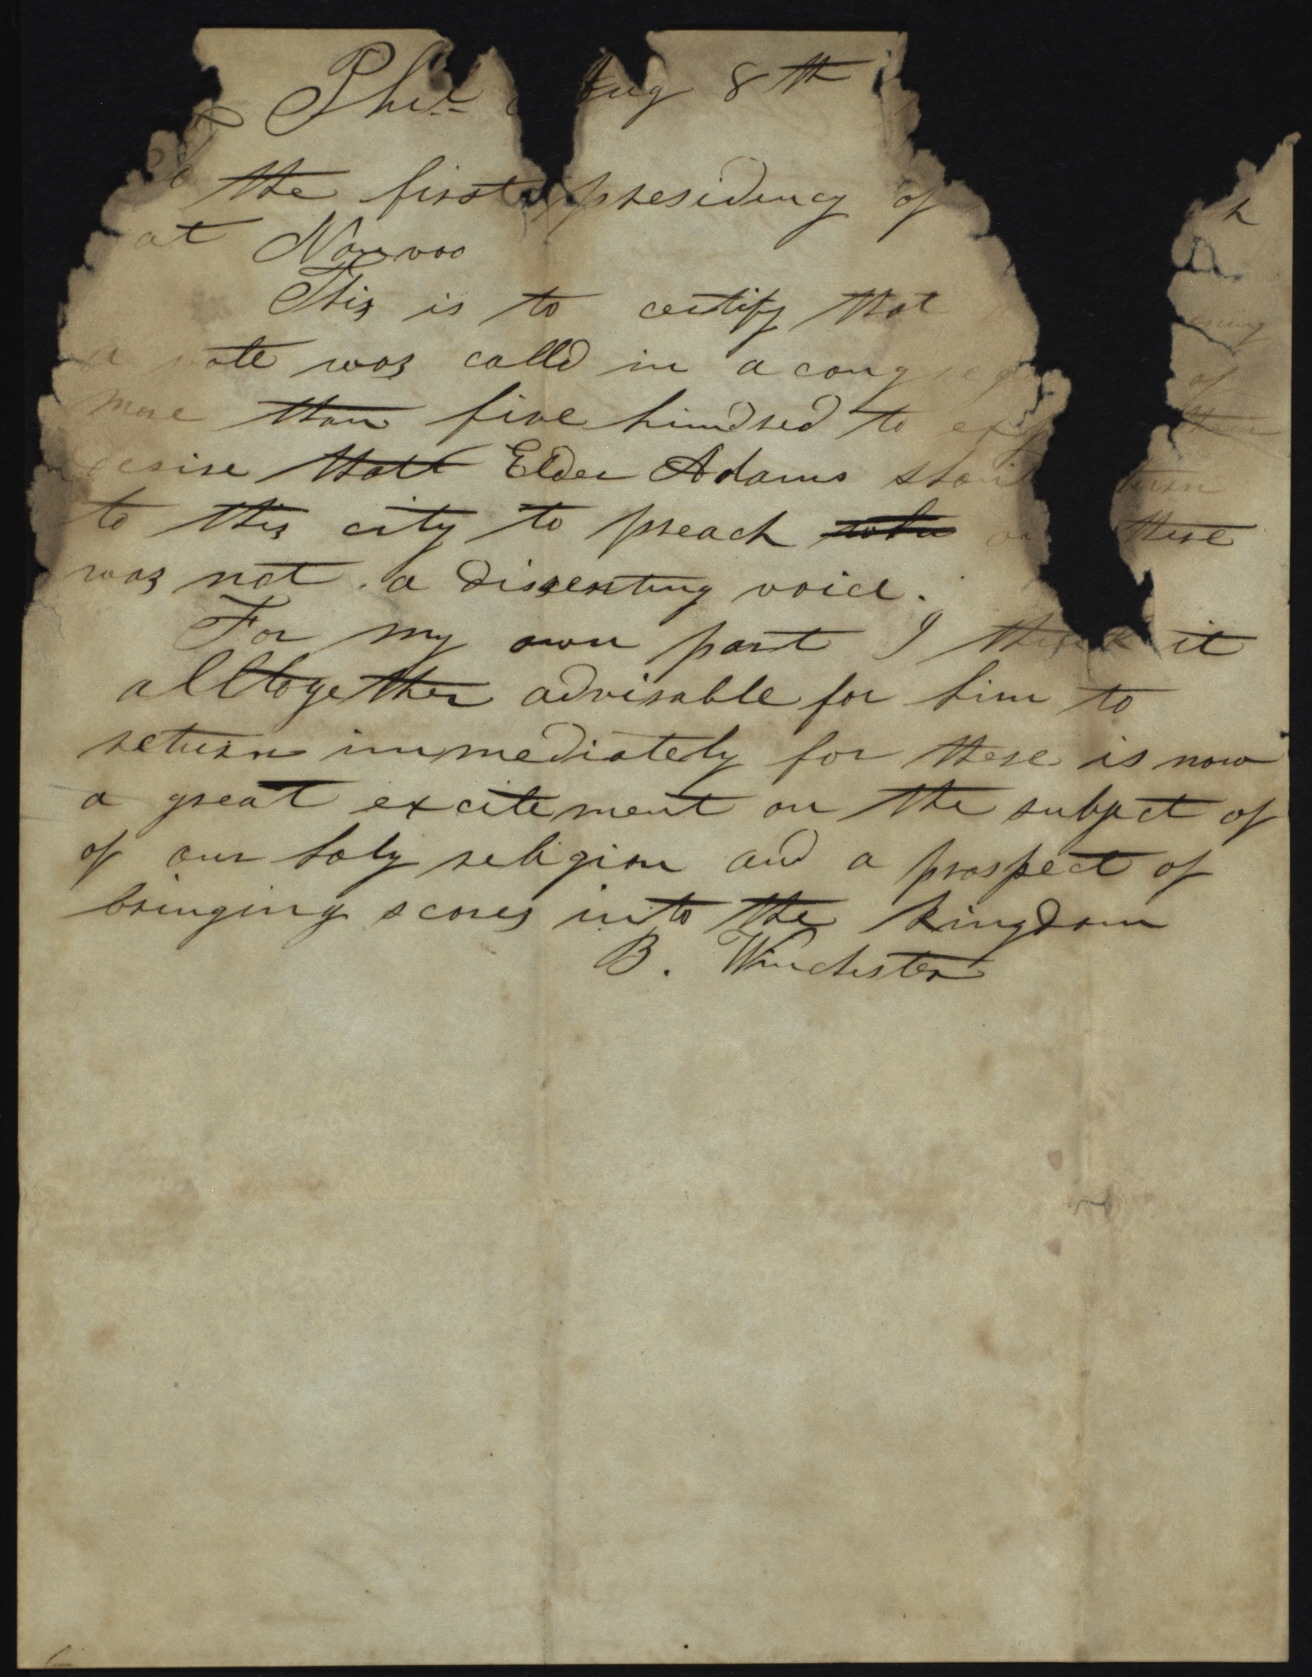 Phil Aug 8th
the first presidency of h
at Nauvoo
This is to certify that ening
a vote was calld in a congreg of
more than five hundred to exp their
desire that Elder Adams shoul turn
to this city to preach there
was not a dissenting voice.
For my own part I think it
alltogether advisable for him to
return immediately for there is now
a great excitement on the subject of
of our holy religion and a prospect of
bringing scores into the kingdom
B. Winchester